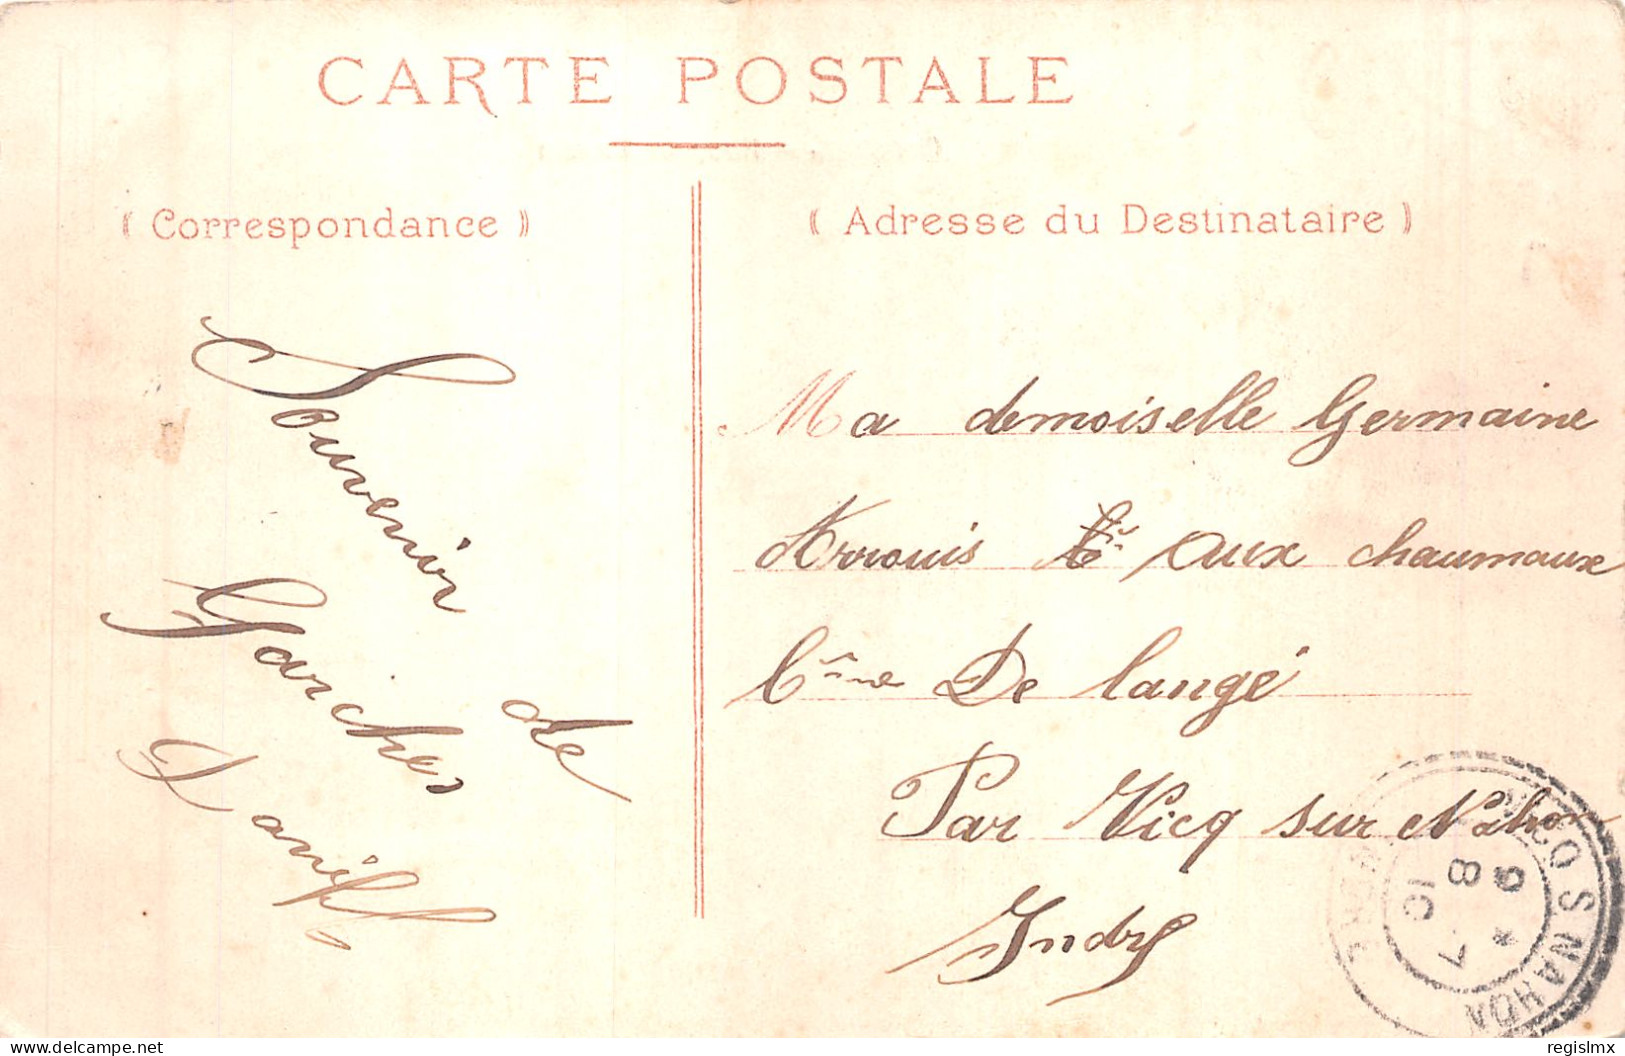 CARTE POSTALE
( Correspondance )
( Adresse du Destinataire )
Souvenir
de
Garches
Ma demoiselle Germaine
Arrouis aux chaumaux
Cne De Langé
Par Vicq sur Nahon
Indre
VICQ S NAHON
9 * 7
8
10
delcampe.net
regislmx